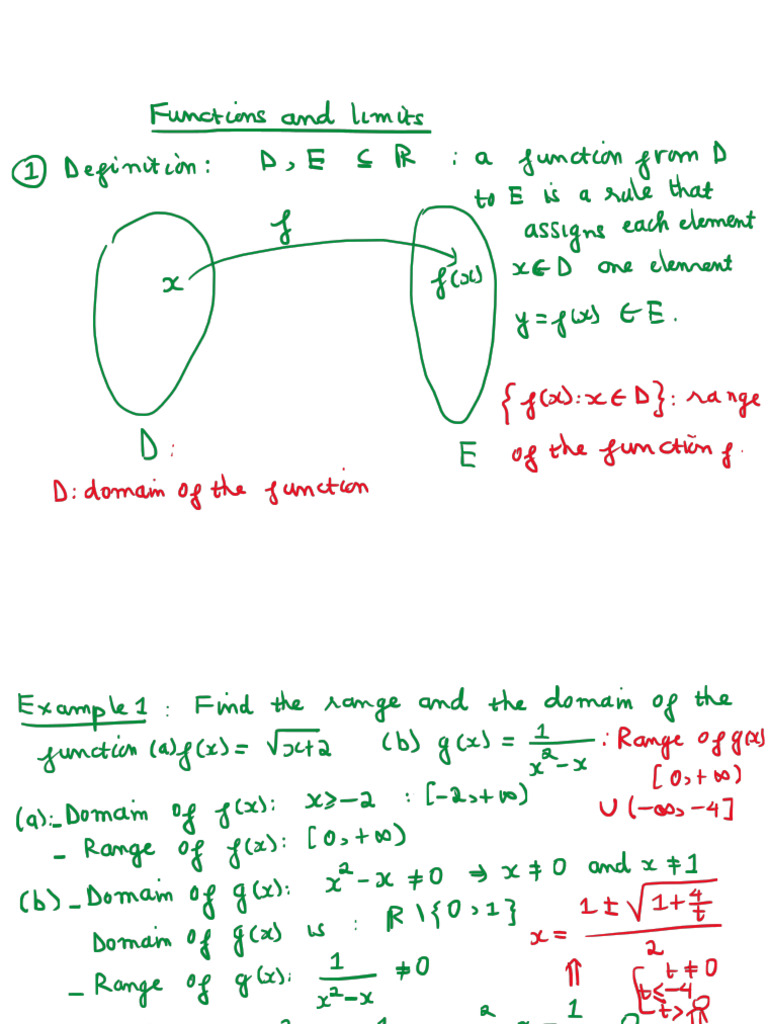 Functions and limits
① Definition: D, E ⊆ ℝ : a function from D
to E is a rule that
assigns each element
x ∈ D one element
y = f(x) ∈ E.
f
x
f(x)
{f(x): x ∈ D}: range
of the function f.
D:
E
D: domain of the function
Example 1: Find the range and the domain of the
function (a) f(x) = √(x+2) (b) g(x) = 1/(x²-x) : Range of g(x)
[0, +∞)
∪ (-∞, -4]
(a): - Domain of f(x): x ≥ -2 : [-2, +∞)
- Range of f(x): [0, +∞)
(b) - Domain of g(x): x² - x ≠ 0 → x ≠ 0 and x ≠ 1
Domain of g(x) is : ℝ \ {0, 1}
x = (1 ± √(1 + 4/t))/2
- Range of g(x): 1/(x²-x) ≠ 0
⇑
t ≠ 0
t ≤ -4